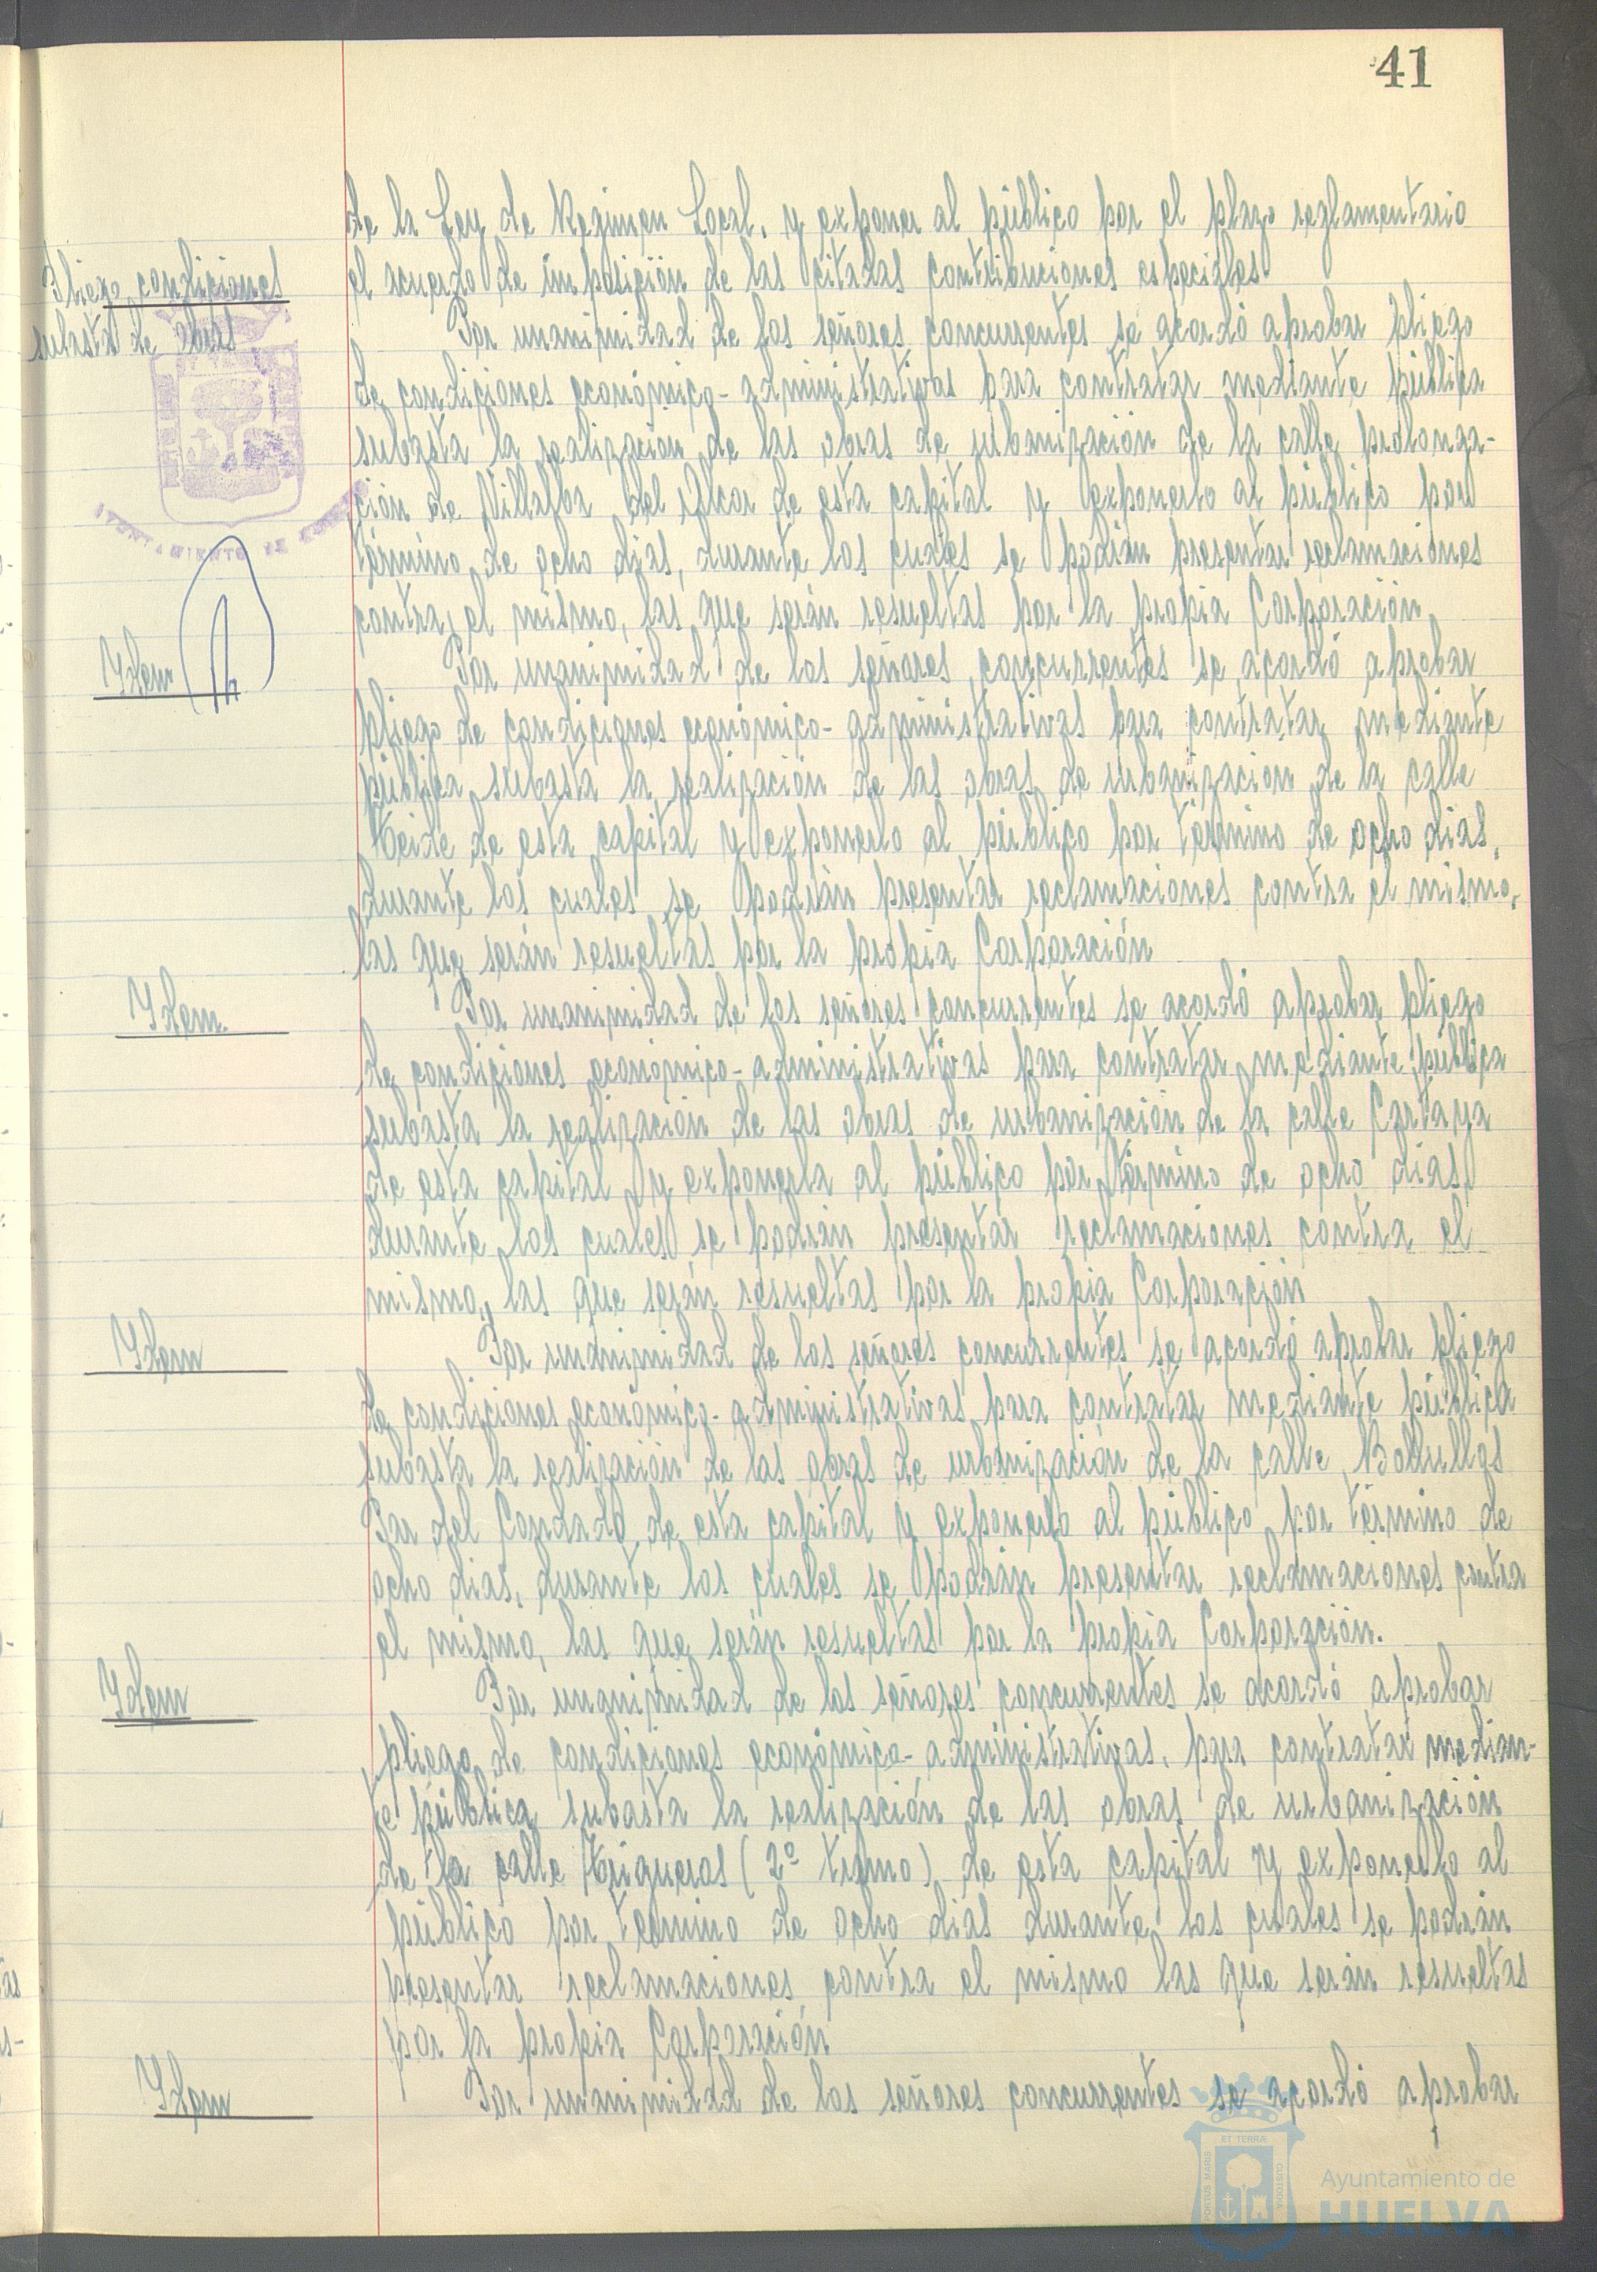 41
de la Ley de Regimen Local, y exponer al público por el plazo reglamentario
el acuerdo de imposición de las citadas contribuciones especiales.
Pliego condiciones
subasta de obras
Por unanimidad de los señores concurrentes se acordó aprobar pliego
de condiciones económico-administrativas para contratar mediante pública
subasta la realización de las obras de urbanización de la calle prolonga-
ción de Villalba del Alcor de esta capital y exponerlo al público por
término de ocho dias, durante los cuales se podrán presentar reclamaciones
contra el mismo, las que serán resueltas por la propia Corporación
Idem
Por unanimidad de los señores concurrentes se acordó aprobar
pliego de condiciones económico-administrativas para contratar mediante
pública subasta la realización de las obras de urbanización de la calle
Teide de esta capital y exponerlo al público por término de ocho dias,
durante los cuales se podrán presentar reclamaciones contra el mismo,
las que serán resueltas por la propia Corporación
Idem
Por unanimidad de los señores concurrentes se acordó aprobar pliego
de condiciones económico-administrativas para contratar mediante pública
subasta la realización de las obras de urbanización de la calle Cartaya
de esta capital y exponerla al público por término de ocho dias
durante los cuales se podrán presentar reclamaciones contra el
mismo, las que serán resueltas por la propia Corporación
Idem
Por unanimidad de los señores concurrentes se acordó aprobar pliego
de condiciones económico-administrativas para contratar mediante pública
subasta la realización de las obras de urbanización de la calle Bollullos
Par del Condado de esta capital y exponerlo al público por término de
ocho dias, durante los cuales se podrán presentar reclamaciones contra
el mismo, las que serán resueltas por la propia Corporación.
Idem
Por unanimidad de los señores concurrentes se acordó aprobar
pliego de condiciones económico-administrativas, para contratar median-
te pública subasta la realización de las obras de urbanización
de la calle Trigueros (2º tramo) de esta capital y exponerlo al
público por termino de ocho dias durante los cuales se podrán
presentar reclamaciones contra el mismo las que serán resueltas
por la propia Corporación
Idem
Por unanimidad de los señores concurrentes se acordó aprobar
PORTUS MARIS
ET TERRAE
CUSTODIA
Ayuntamiento de
HUELVA